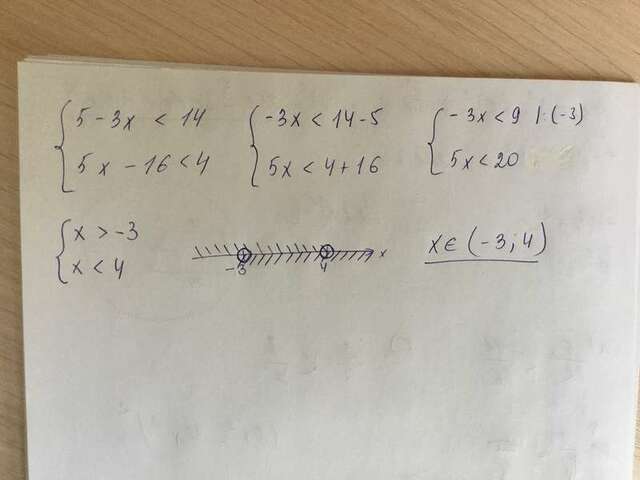 5 - 3x < 14
5x - 16 < 4
-3x < 14-5
5x < 4+16
-3x < 9 |:(-3)
5x < 20
x > -3
x < 4
-3 4 x
x ∈ (-3; 4)